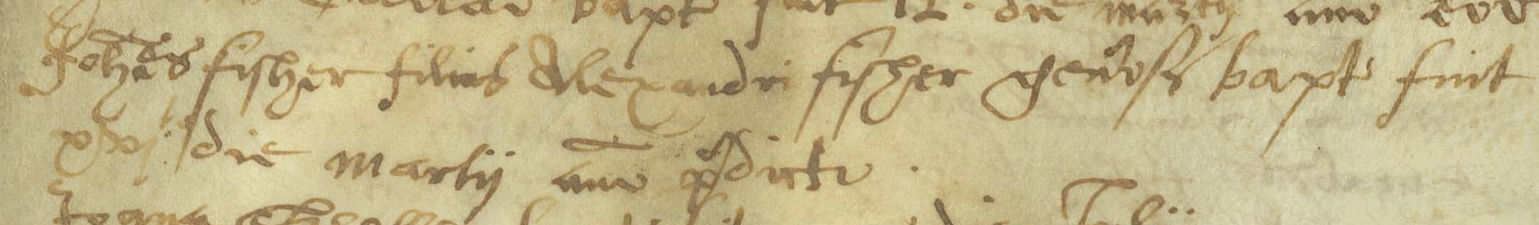 bapt fuit 12 die martij anno eod
Johēs fisher filius Alexandri fisher genōsi bapt fuit
xvj die Martij anno p̄dicto.